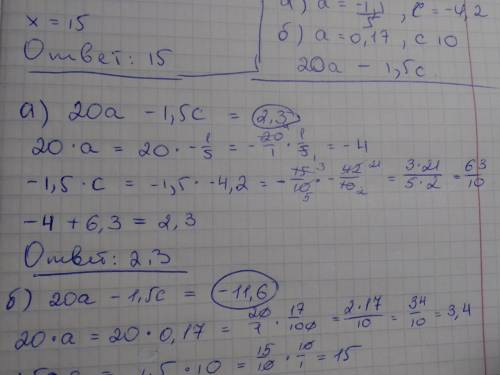 x = 15
Ответ: 15
а) a = -1/5, c = -4,2
б) a = 0,17, c 10
20a - 1,5c
а) 20a - 1,5c = 2,3
20 · a = 20 · -1/5 = -20/1 · 1/5 = -4
-1,5 · c = -1,5 · -4,2 = -15/10 · -42/10 = 3·21/5·2 = 63/10
-4 + 6,3 = 2,3
Ответ: 2,3
б) 20a - 1,5c = -11,6
20 · a = 20 · 0,17 = 20/1 · 17/100 = 2·17/10 = 34/10 = 3,4
1,5 · 10 = 15/10 · 10/1 = 15